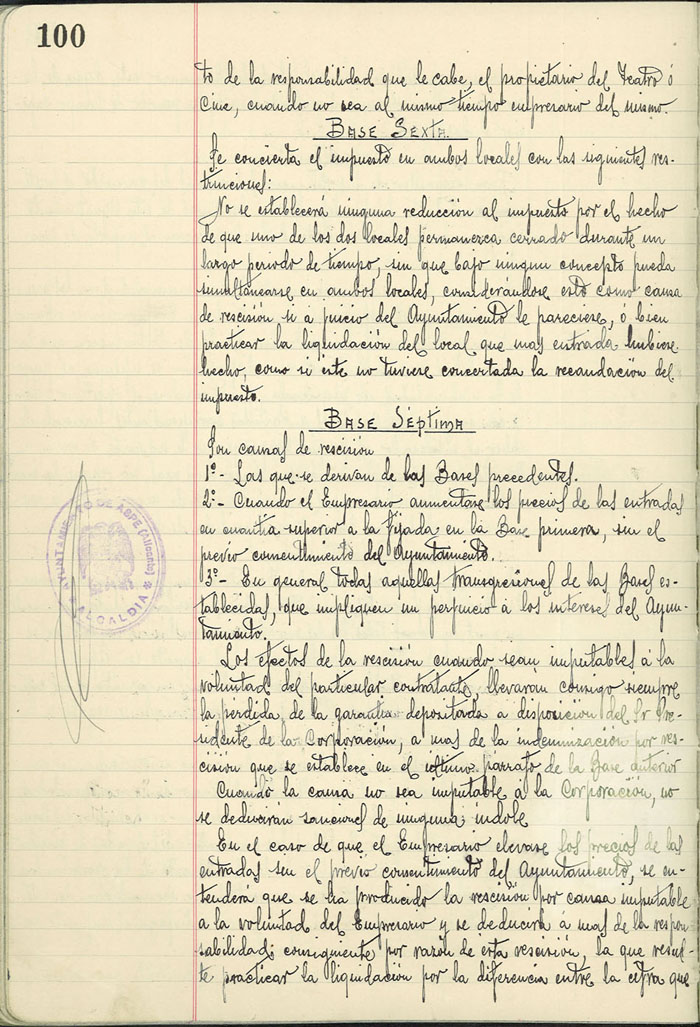 100
to de la responsabilidad que le cabe, el propietario del Teatro ó
Cine, cuando no sea al mismo tiempo empresario del mismo.
BASE SEXTA
Se concierta el impuesto en ambos locales con las siguientes res-
tricciones:
No se establecerá ninguna reducción al impuesto por el hecho
de que uno de los dos locales permanezca cerrado durante un
largo periodo de tiempo, sin que bajo ningun concepto pueda
simultanearse en ambos locales, considerándose esto como causa
de rescisión si a juicio del Ayuntamiento le pareciese, ó bien
practicar la liquidación del local que mas entrada hubiese
hecho, como si éste no tuviese concertada la recaudación del
impuesto.
BASE SÉPTIMA
Son causas de rescisión
1º- Las que se derivan de las Bases precedentes.
2º- Cuando el Empresario aumentase los precios de las entradas
en cuantia superior a la fijada en la Base primera, sin el
previo consentimiento del Ayuntamiento.
3º- En general todas aquellas transgresiones de las Bases es-
tablecidas, que impliquen un perjuicio a los intereses del Ayun-
tamiento.
Los efectos de la rescisión cuando sean imputables á la
voluntad del particular contratante, llevarán consigo siempre
la perdida de la garantia depositada a disposición del Sr Pre-
sidente de la Corporación, a mas de la indemnización por res-
cisión que se establece en el ultimo parrafo de la Base anterior
Cuando la causa no sea imputable a la Corporación, no
se deducirán sanciones de ninguna indole
En el caso de que el Empresario elevase los precios de las
entradas sin el previo consentimiento del Ayuntamiento, se en-
tenderá que se ha producido la rescisión por causa imputable
a la voluntad del Empresario y se deducirá á mas de la respon
sabilidad consiguiente por razón de esta rescisión, la que resul-
te practicar la liquidación por la diferencia entre la cifra que
AYUNTAMIENTO DE ASPE (Alicante)
ALCALDIA